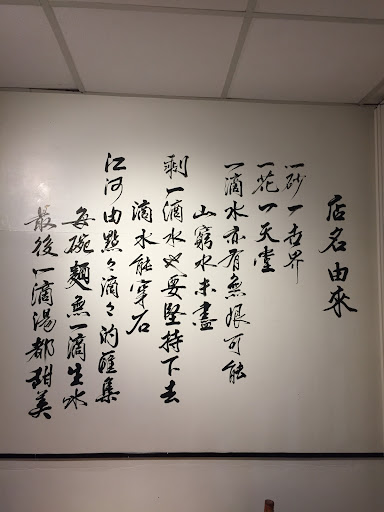 店名由來
一砂一世界
一花一天堂
一滴水亦有無限可能
山窮水未盡
剩一滴水也要堅持下去
滴水能穿石
江河由點々滴々的匯集
每碗麵無一滴生水
最後一滴湯都甜美